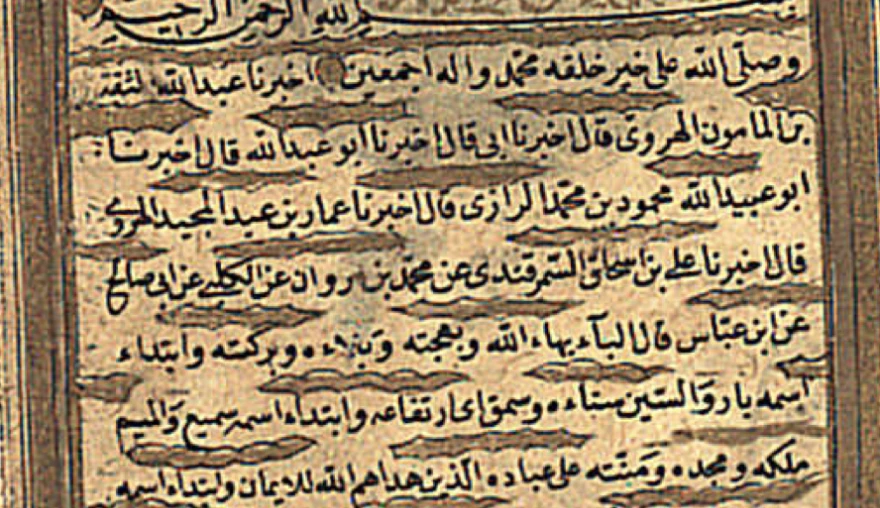 الله الرحمن الرحيم
وصلى الله على خير خلقه محمد واله اجمعين اخبرنا عبد الله الثقة
بن المامون الهروى قال اخبرنا ابى قال اخبرنا ابو عبد الله قال اخبرنا
ابو عبيد الله محمود بن محمد الرازى قال اخبرنا عمار بن عبد المجيد الهروى
قال اخبرنا على بن اسحاق السمرقندى عن محمد بن مروان عن الكلبى عن ابى صالح
عن ابن عباس قال الباء بهاء الله وبهجته وبلاءه وبركته وابتداء
اسمه بار والسين سناءه وسموه اى ارتفاعه وابتداء اسمه سميع والميم
ملكه ومجده ومنته على عباده الذين هداهم الله للايمان وابتداء اسمه